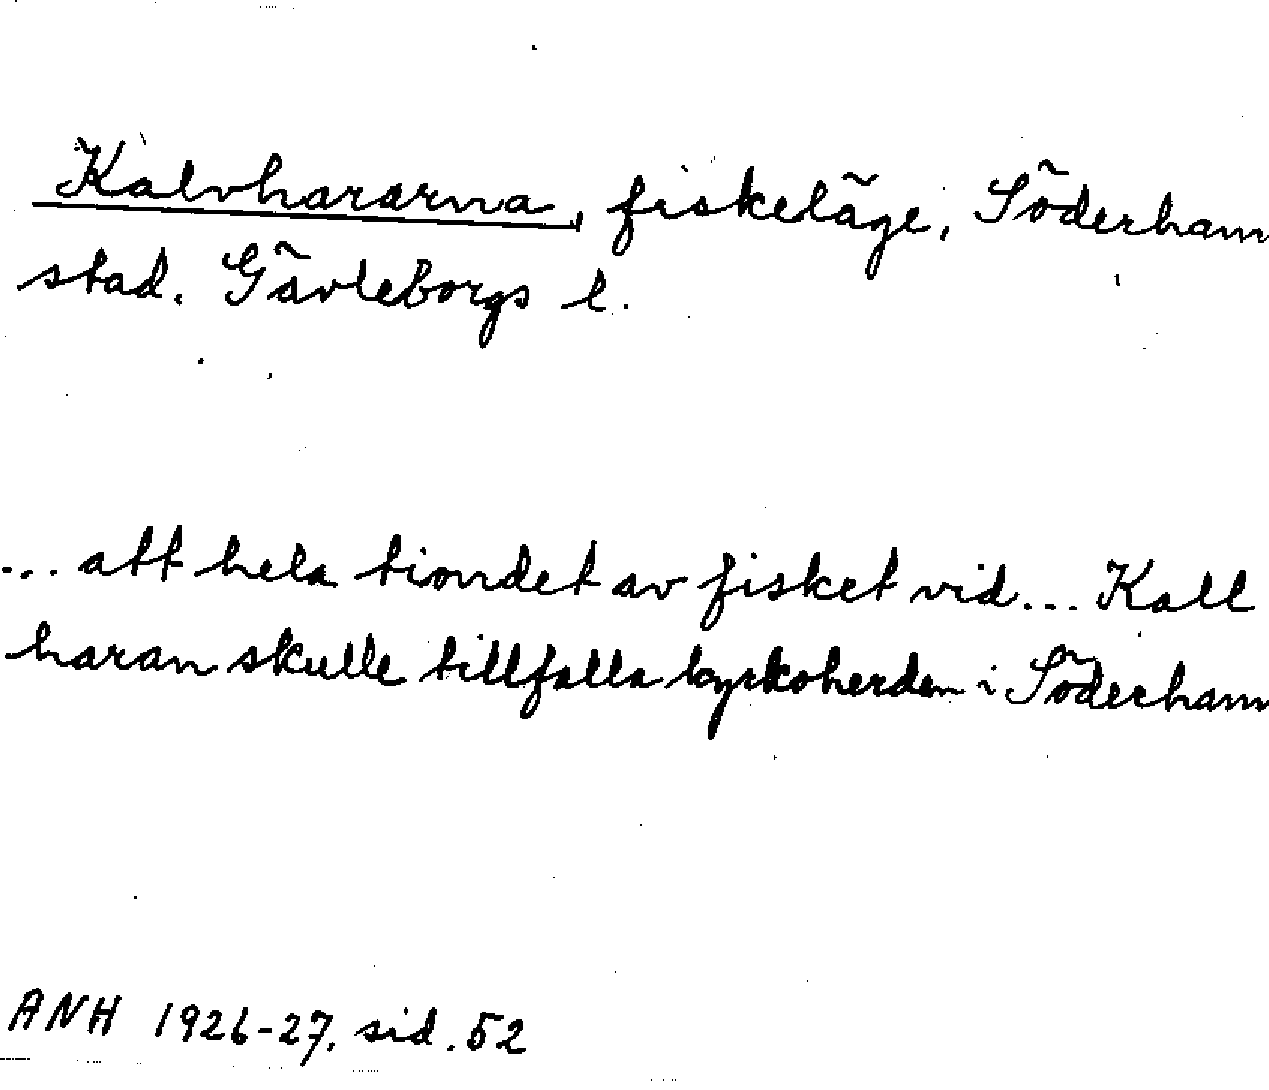 Kalvhararna, fiskeläge, Söderham
stad. Gävleborgs l.
... att hela tiondet av fisket vid... Kall
haran skulle tillfalla kyrkoherden i Söderham
ANH 1926-27. sid. 52